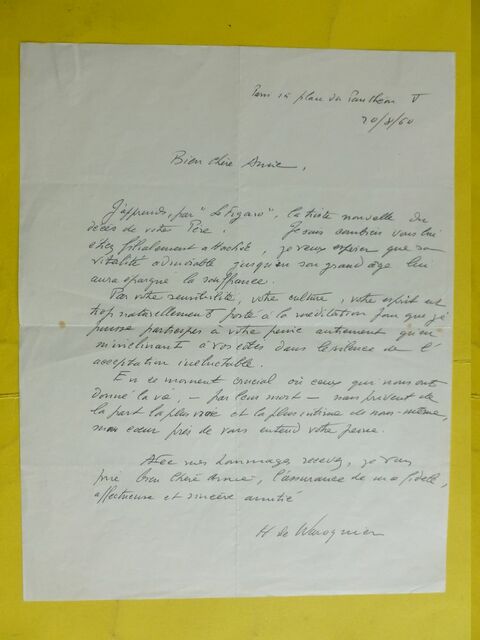 Paris place du Panthéon V
20/8/60
Bien chère Annie,
J'apprends, par "Le Figaro", la triste nouvelle du
décès de votre Père. Je sais combien vous lui
étiez filialement attaché, je veux espérer que sa
vitalité admirable jusqu'en son grand âge lui
aura épargné la souffrance.
Par votre sensibilité, votre culture, votre esprit est
trop naturellement porté à la méditation pour que je
puisse participer à votre peine autrement qu'en
m'inclinant à vos côtés dans le silence de l'
acceptation inéluctable.
En ce moment crucial où ceux qui nous ont
donné la vie, – par leur mort – nous privent de
la part la plus vraie et la plus intime de nous-même,
mon cœur près de vous entend votre peine.
Avec mes hommages, recevez, je vous
prie bien chère Annie, l'assurance de ma fidèle,
affectueuse et sincère amitié
H. de Waroquier